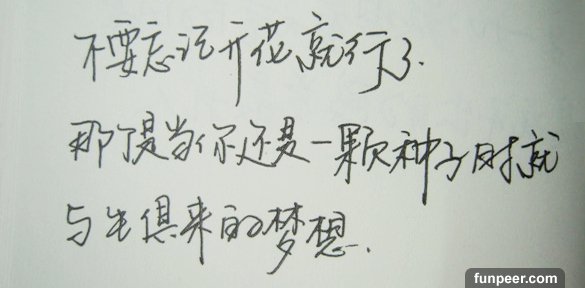 不要忘记开花就行了.
那是当你还是一颗种子时就
与生俱来的梦想.
funpeer.com